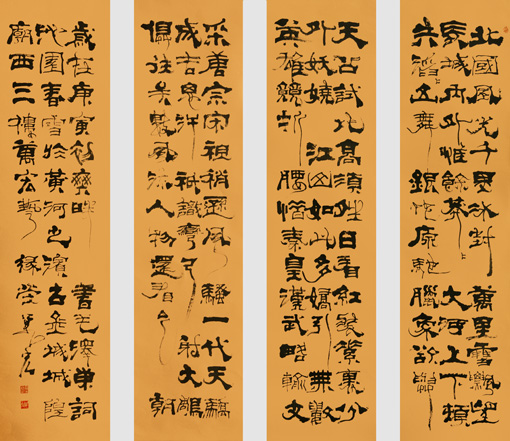 北國風光千里冰封萬里雪飄望
長城内外惟餘莽大河上下頓
失滔山舞銀蛇原馳臘象欲與
天公試比高須晴日看紅裝素裹分
外妖嬈江山如此多嬌引無數
英雄競折腰惜秦皇漢武略輸文
采唐宗宋祖稍遜風騷一代天驕
成吉思汗祇識彎弓射大雕
俱往矣數風流人物還看今朝
歲在庚寅初書毛澤東詞
沁園春雪於黃河之濱古金城城隍
廟西三樓萬宏藝緣堂